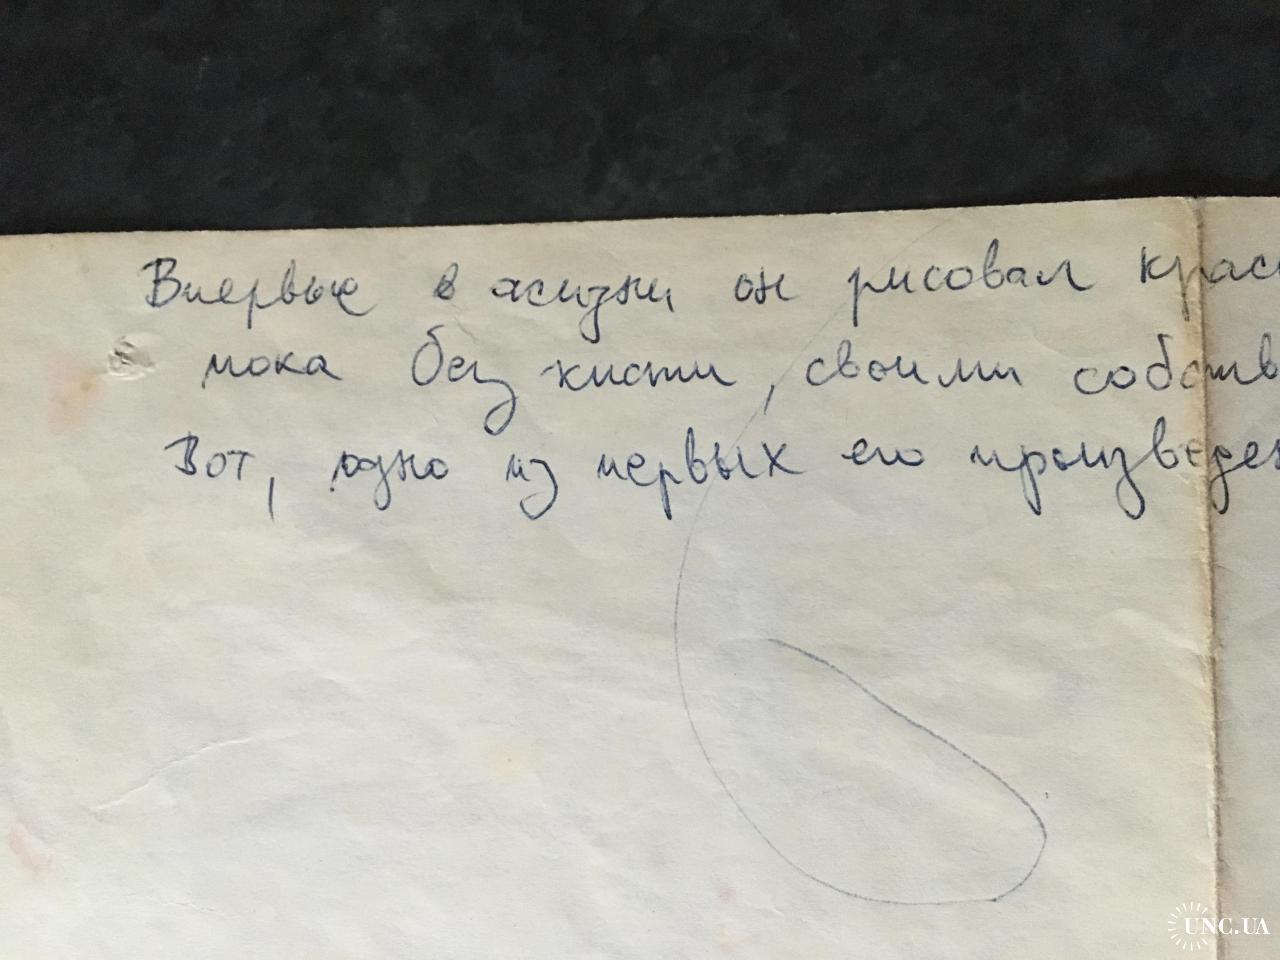 Впервые в жизни он рисовал крас
пока без кисти, своими собств
Вот, одно из первых его произведен
UNC.UA